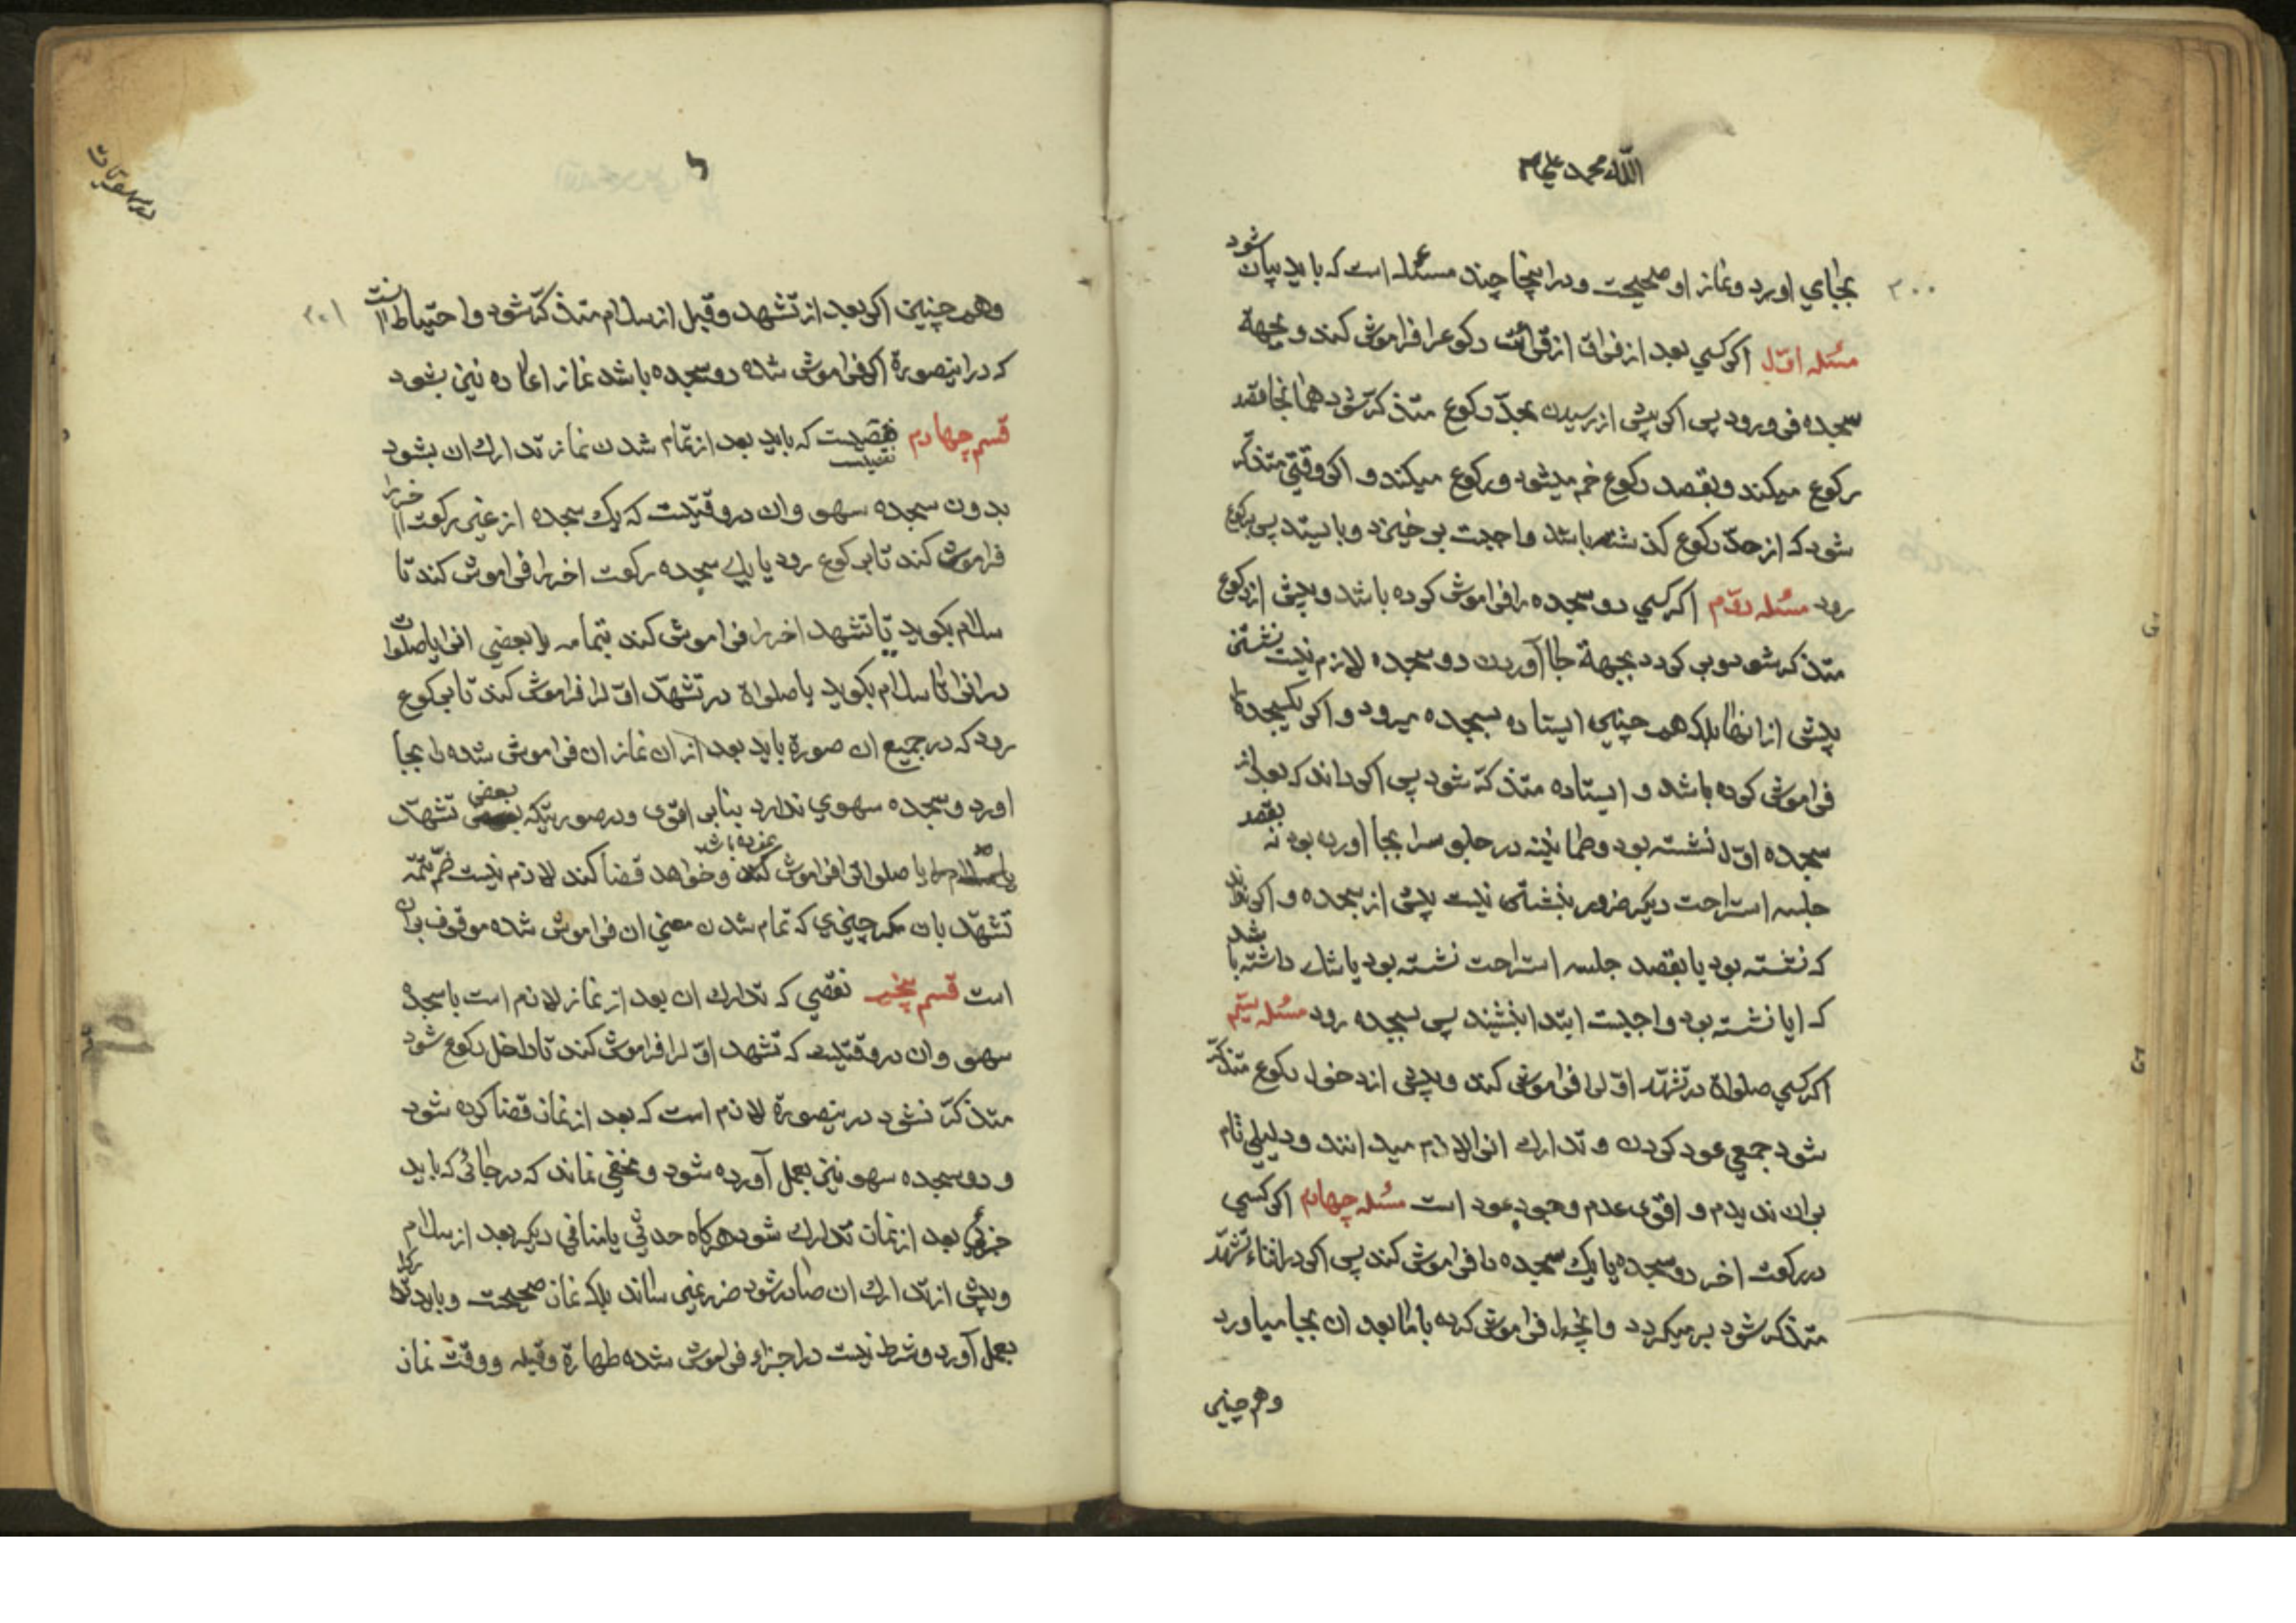 الله محمد علی
۲۰۰
بجای اورد و نماز او صحیحست و در اینجا چند مسئله است که باید بیان شود
مسئله اوّل اکر کسی بعد از فراق از قرائت رکوع را فراموش کند و بجهة
سجده فرو رود پس اکر پیش از رسیدن بحدّ رکوع متذکّر شود همانجا قصد
رکوع میکند و بقصد رکوع خم میشود و رکوع میکند و اکر وقتی متذکّر
شود که از حدّ رکوع کذشته باشد واجبست بر خیزد و بایستد پس برکوع
رود مسئله دوّم اکر کسی دو سجده را فراموش کرده باشد و پیش از رکوع
متذکر شود و بر کردد بجهة بجا آوردن دو سجده لازم نیست نشستن
پیش از انها بلکه همچنین ایستاده بسجده میرود و اکر یکسجده را
فراموش کرده باشد و ایستاده متذکّر شود پس اکر داند که بعد از
سجده اوّل نشسته بود و طمانینه در جلوس را بجا اورده بود نه بقصد
جلسه استراحت دیکر ضرور بنشستن نیست پیش از سجده و اکر نداند
که نشسته بود یا بقصد جلسه استراحت نشسته بود یا شک داشته باشد
که ایا نشسته بود واجبست ابتدا بنشیند پس بسجده رود مسئله سیّم
اکر کسی صلواة در تشهّد اوّل را فراموش کند و پیش از دخول رکوع متذکّر
شود جمعی عود کردن و تدارک انرا لازم میدانند و دلیلی تام
بر ان ندیدم و اقوی عدم وجوب عود است مسئله چهارم اکر کسی
در رکعت اخر دو سجده یا یک سجده را فراموش کند پس اکر در اثناء تشهّد
متذکر شود بر میکردد و انچه را فراموش کرده با ما بعد ان بجا میاورد
و هم چنین
۲۰۱
و هم چنین اکر بعد از تشهد و قبل از سلام متذکّر شود و احتیاط انست
که در اینصورة اکر فراموش شده دو سجده باشد نماز اعاده نیز بشود
قسم چهارم نقصیست که باید بعد از تمام شدن نماز تدارک ان بشود
بدون سجده سهو و ان در وقتیست که یک سجده از غیر رکعت اخر را
فراموش کند تا برکوع رود یا یک سجده رکعت اخر را فراموش کند تا
سلام بکوید یا تشهد اخر را فراموش کند بتمامه یا بعضی انرا یا صلوات
در انرا تا سلام بکوید یا صلواة در تشهّد اوّل را فراموش کند تا برکوع
رود که در جمیع ان صورة باید بعد از ان نماز ان فراموش شده را بجا
اورد و سجده سهوی ندارد بنا بر اقوی و در صورتیکه بعضی تشهّد
یا صلوات را فراموش کرده باشد و خواهد قضا کند لازم نیست ضمّ تتمّه
تشهّد بان مکر چیزی که تمام شدن معنی ان فراموش شده موقوف بران
است قسم پنجم نقصی که تدارک ان بعد از نماز لازم است با سجده
سهو و ان در وقتیست که تشهد اوّل را فراموش کند تا داخل رکوع شود
متذکّر نشود در ینصورة لازم است که بعد از نماز قضا کرده شود
و دو سجده سهو نیز بعمل آورده شود و مخفی نماند که در جائی که باید
جزئی بعد از نماز تدارک شود هر کاه حدثی یا منافی دیکر بعد از سلام
و پیش از تدارک ان صادر شود ضرر نمیرساند بلکه نماز صحیحست و باید تدارک
بعمل آورد و شرط نیست در اجزاء فراموش شده طهارة و قبله و وقت نماز